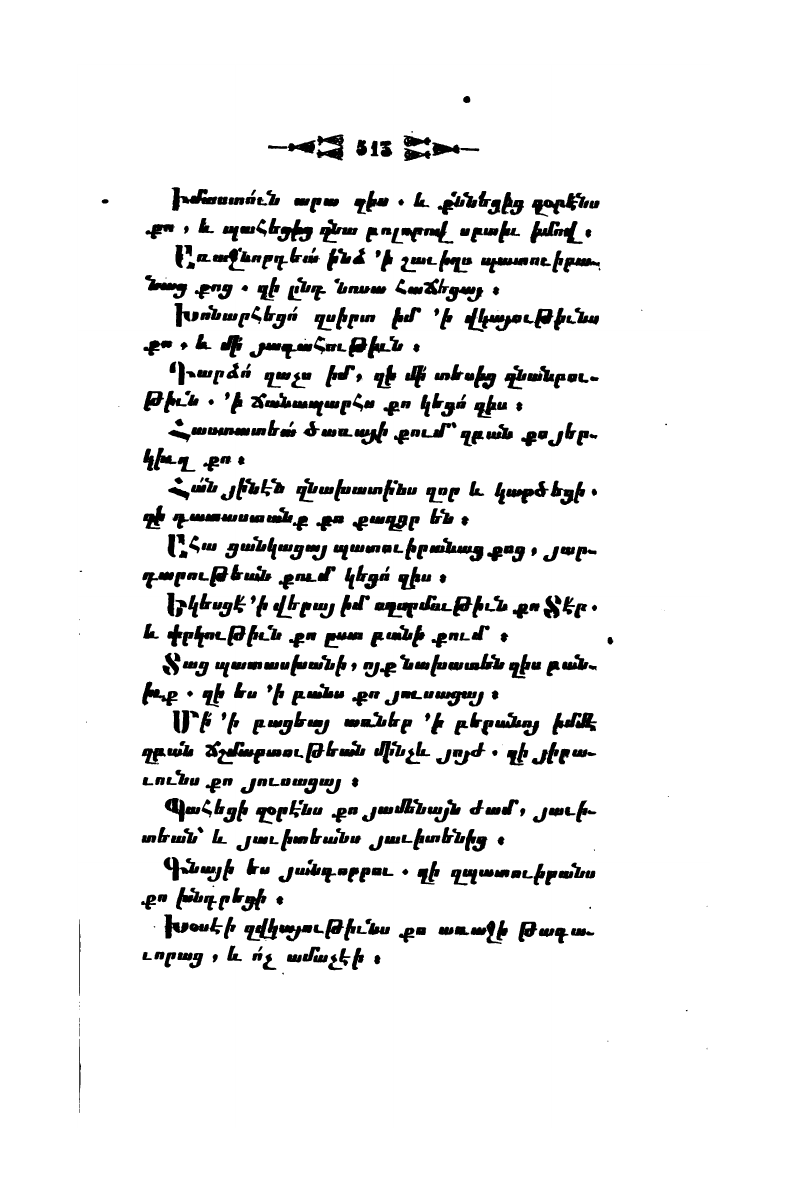 513
Իմաստո՛ւն արա զիս. և քննեցից զօրէնս
քո, և պահեցից զնա բոլորով սրտիւ իմով։
Առաջնորդեա՛ ինձ ՚ի շաւիղս պատուիրա-
նաց քոց. զի ընդ նոսա հաճեցայ։
Խոնարհեցո՛ զսիրտ իմ ՚ի վկայութիւնս
քո, և մի՛ յագահութիւն։
Դարձո՛ զաչս իմ, զի մի՛ տեսից զնանրու-
թիւն. ՚ի ճանապարհս քո կեցո՛ զիս։
Հաստատեա՛ ծառայի քում՝ զբան քո յեր-
կիւղ քո։
Հա՛ն յինէն զնախատինս զոր և կարծեցի.
զի դատաստանք քո քաղցր են։
Ահա ցանկացայ պատուիրանաց քոց, յար-
դարութեան քում կեցո՛ զիս։
Եկեսցէ ՚ի վերայ իմ ողորմութիւն քո Տէր.
և փրկութիւն քո ըստ բանի քում ։
Տաց պատասխանի, ոյք նախատեն զիս բան-
իւք. զի ես ՚ի բանս քո յուսացայ։
Մի՛ ՚ի բացեայ առներ ՚ի բերանոյ իմմէ
զբան ճշմարտութեան մինչև յոյժ. զի յիրա-
ւունս քո յուսացայ։
Պահեցի զօրէնս քո յամենայն ժամ, յաւի-
տեան՝ և յաւիտեանս յաւիտենից։
Գնայի ես յանդորրու. զի զպատուիրանս
քո խնդրեցի։
Խօսէի զվկայութիւնս քո առաջի թագա-
ւորաց, և ո՛չ ամաչէի։